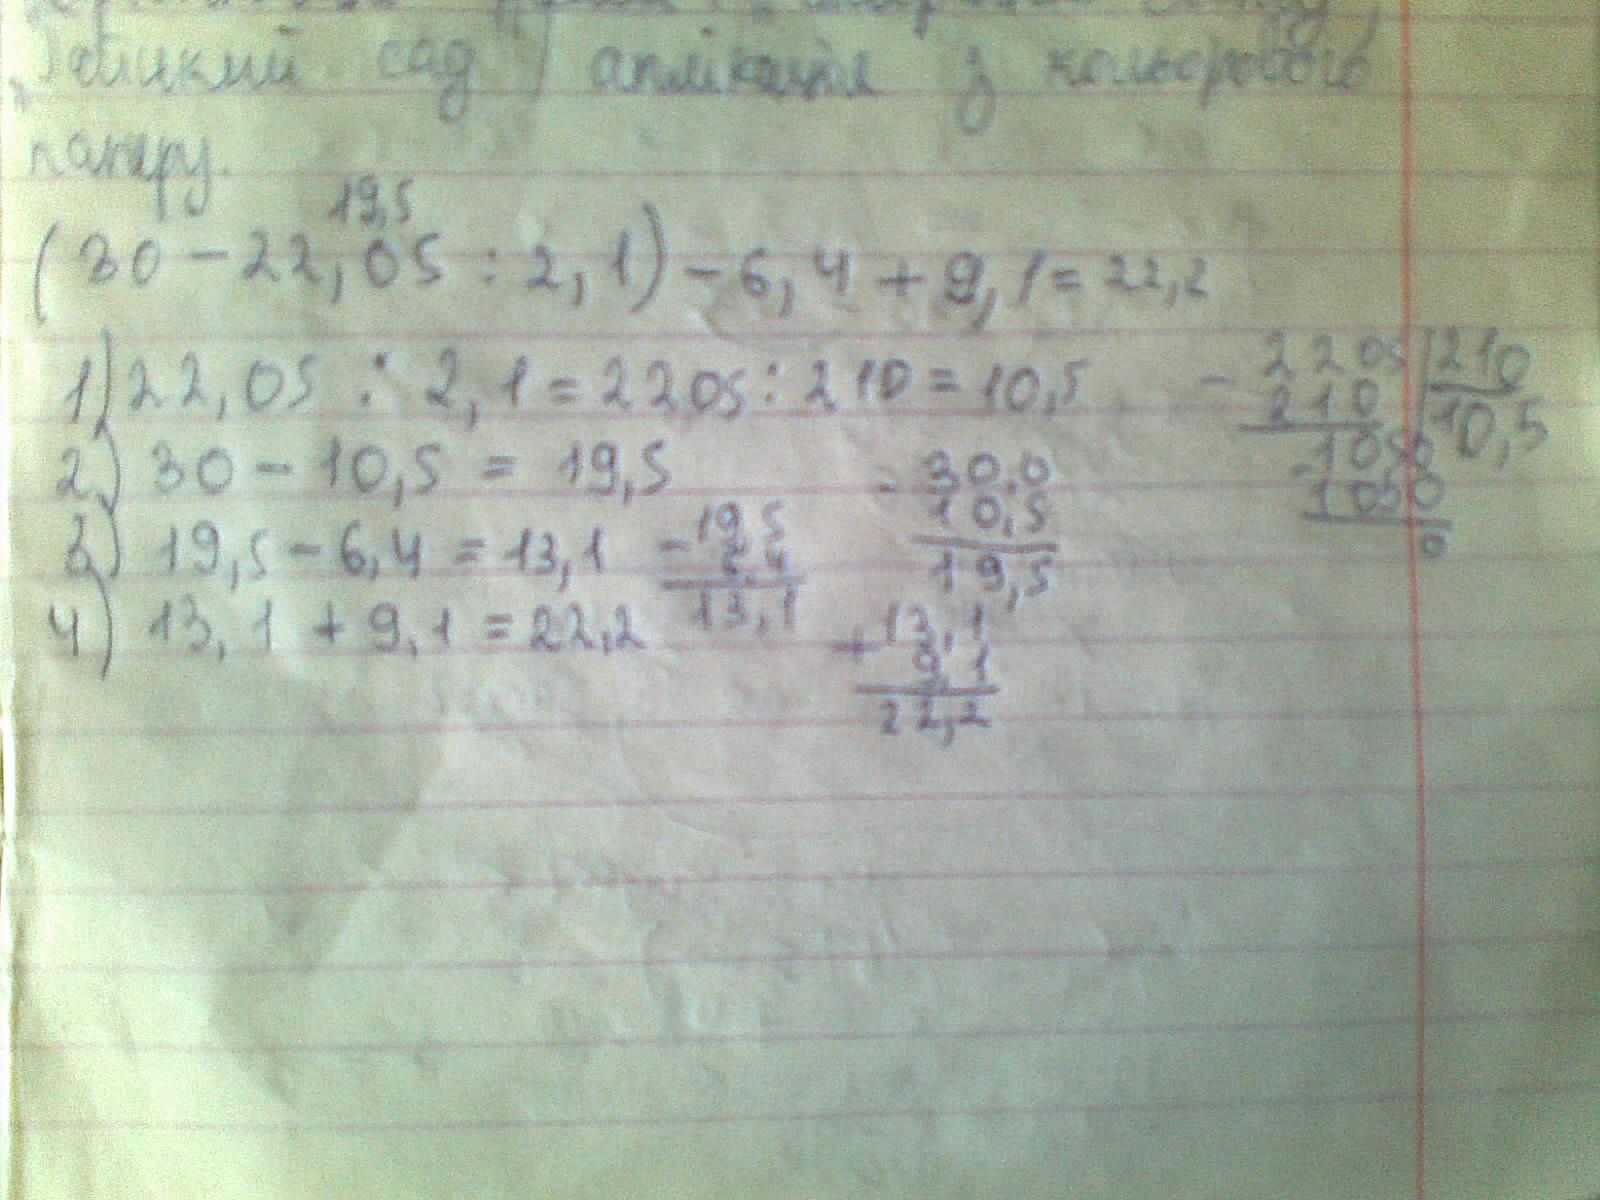 сад аплікація з кольорового
паперу.
19,5
(30 - 22,05 : 2,1) - 6,4 + 9,1 = 22,2
1) 22,05 : 2,1 = 2205 : 210 = 10,5
2) 30 - 10,5 = 19,5
3) 19,5 - 6,4 = 13,1
4) 13,1 + 9,1 = 22,2
- 19,5
6,4
13,1
- 30,0
10,5
19,5
+ 13,1
9,1
22,2
- 2205 | 210
210 | 10,5
- 1050
1050
0